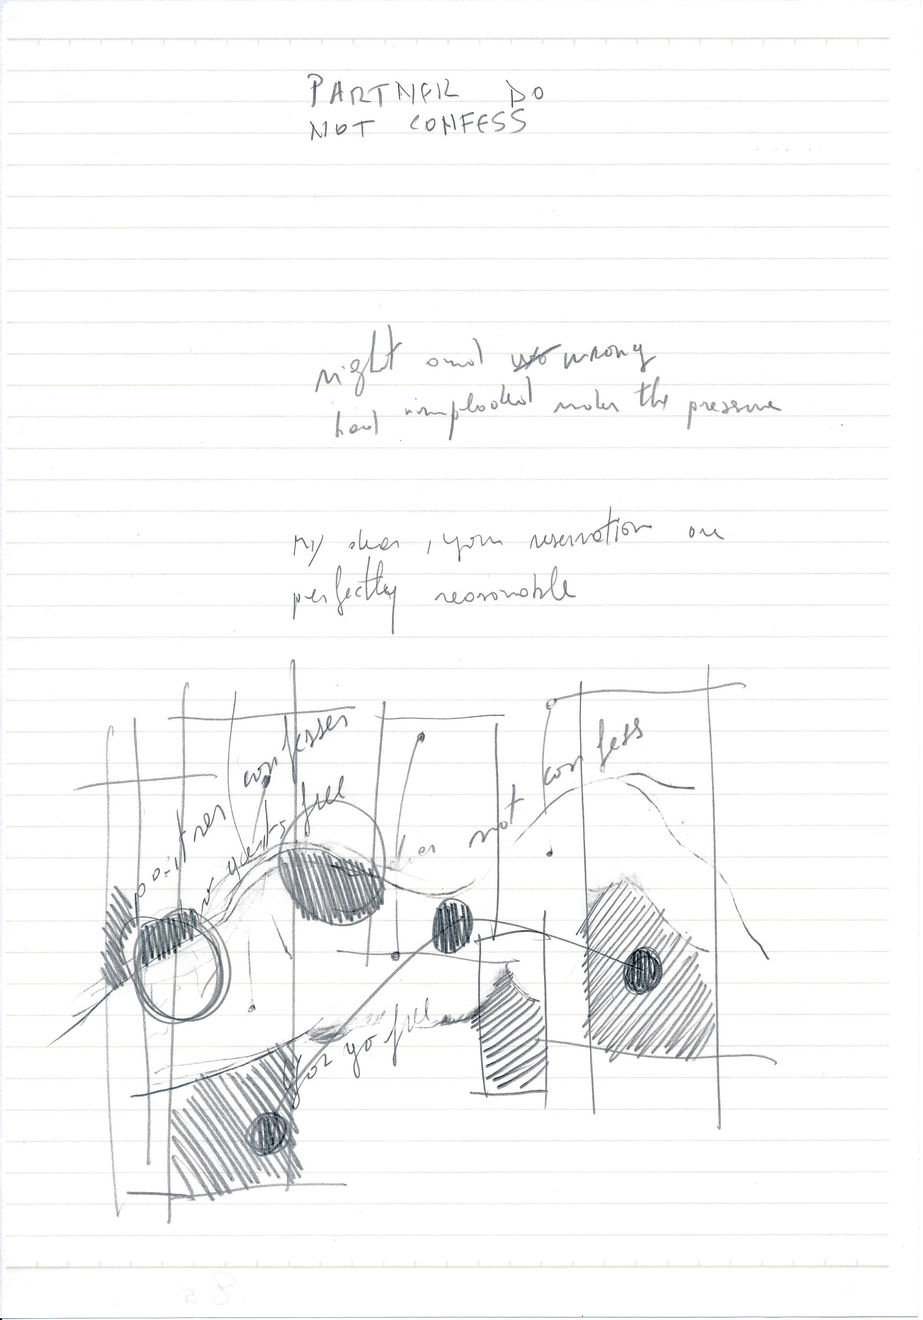 PARTNER DO
NOT CONFESS
right and wrong
had imploded under the pressure
My dear, your reservation are
perfectly reasonable
partner confesses
free
does not confess
or go free